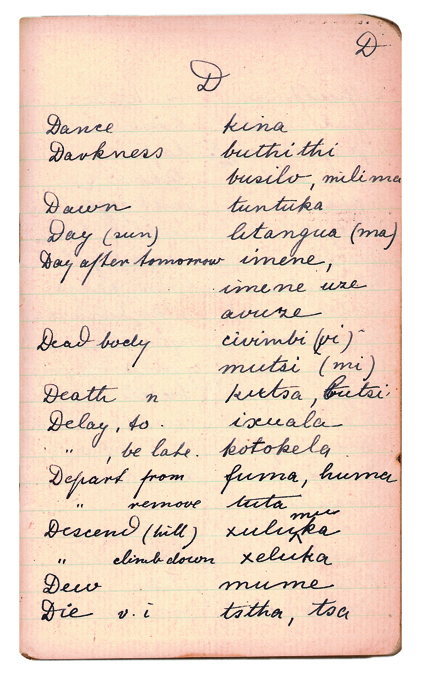 D
D
Dance kina
Darkness buthithi
busilo, milima
Dawn tuntuka
Day (sun) litangua (ma)
Day after tomorrow imene,
imene uze
avuze
Dead body civimbi (vi)
mutsi (mi)
Death n kutsa, butsi
Delay, to. ixuala
" , be late. kotokela
Depart from fuma, huma
" remove tuta
Descend (hill) xulumuka
" climb down xeluka
Dew mume
Die v. i tstha, tsa